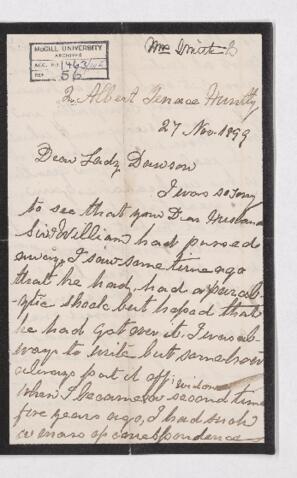 McGILL UNIVERSITY
ARCHIVES
ACC. NO. 1463/
REF. 56
Mrs
2, Albert Terrace Huntly
27 Nov. 1899
Dear Lady Dawson
I was so sorry
to see that your Dear Husband
Sir William had passed
away, I saw some time ago
that he had, had a paral-
-ytic shock but hoped that
he had got over it. I was al-
ways to write but somehow
always put it off
widow
when I became a second time
five years ago, I had such
a mass of correspondence